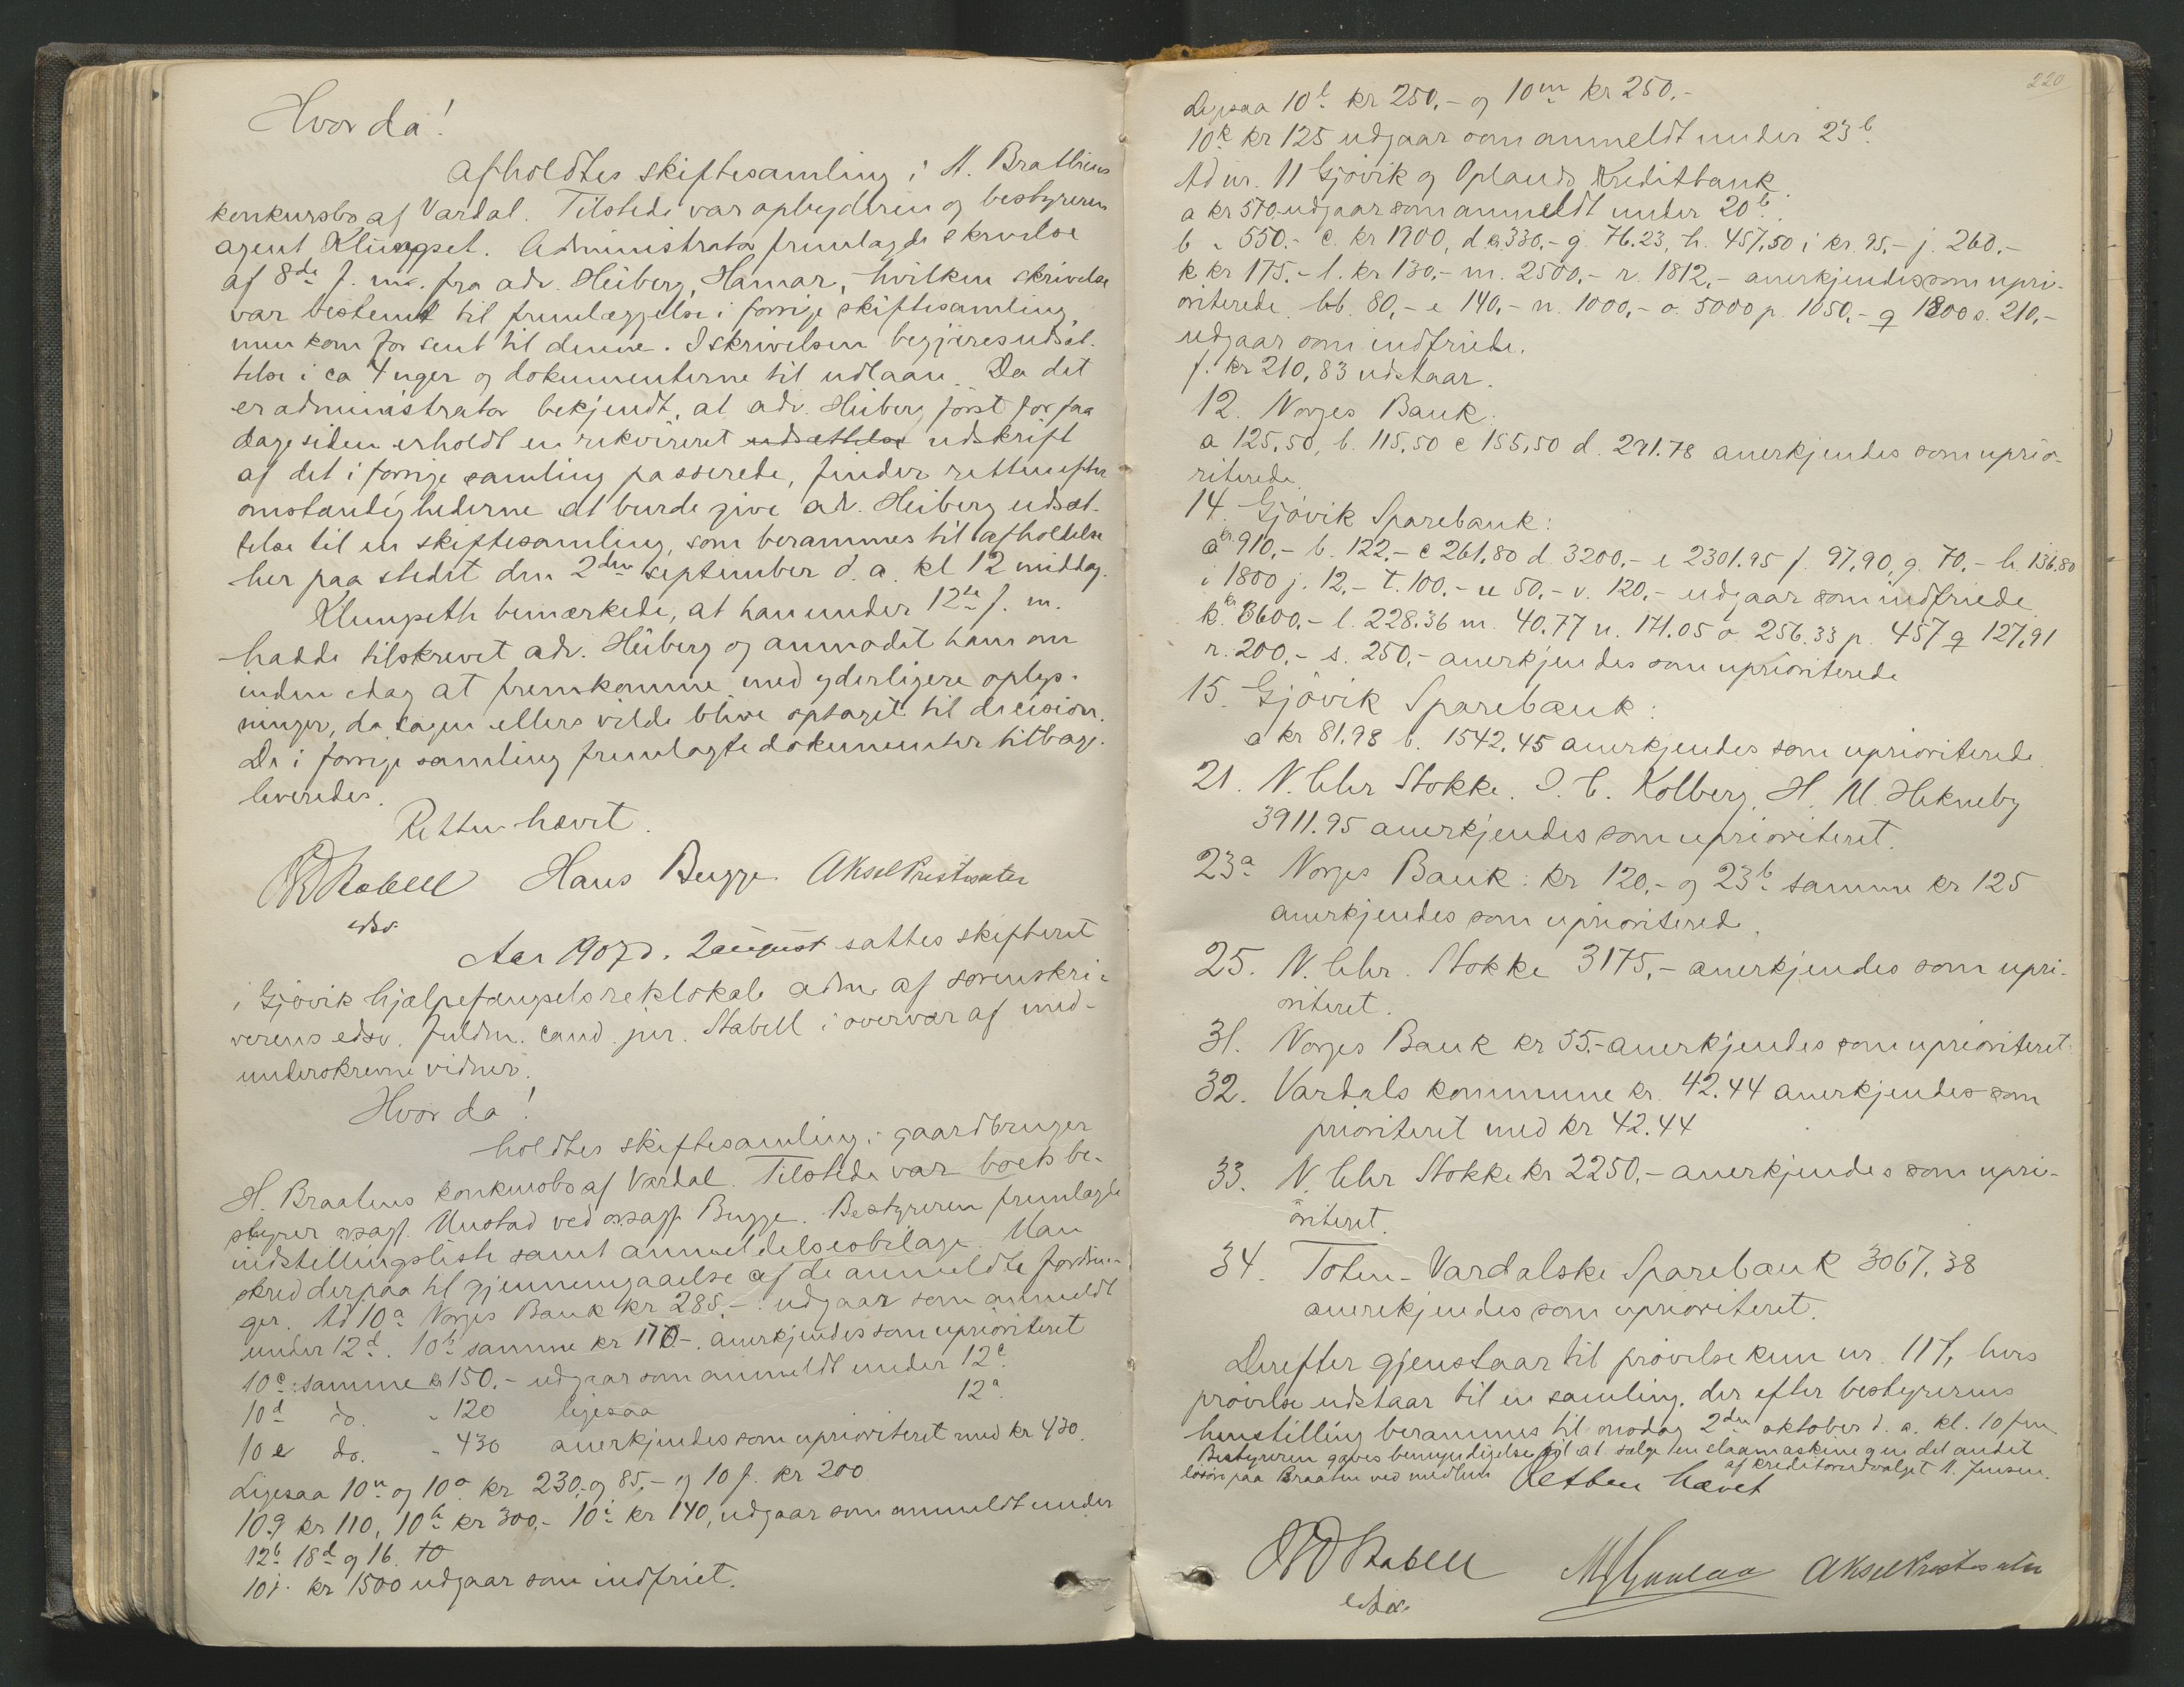 Hvorda!
afholdtes skiftesamling i A. Brathens
konkursbo af Vardal. Tilstede var opbyderen og bestyreren
agent Klungset. Administrator fremlagde skrivelse
af 8de f. m. fra adv. Heiberg, Hamar, hvilken skrivelse
var bestemt til fremlæggelse i forrige skiftesamling,
men kom for sent til denne. I skrivelsen begjæres udsæt-
telse i ca 4 uger og dokumenterne til udlaan. Da det
er administrator bekjendt, at adv. Heiberg først for faa
dage siden erholdt en rekvireret udsættelse udskrift
af det i forrige samling passerede, finder retten efter
omstændighederne at burde give adv. Heiberg udsæt-
telse til en skiftesamling, som berammes til afholdelse
her paa stedet den 2den september d. a. kl 12 middag.
Klungseth bemærkede, at han under 12te f. m.
hadde tilskrevet adv. Heiberg og anmodet ham om
inden idag at fremkomme med yderligere oplys-
ninger, da sagen ellers vilde blive optaget til decision.
De i forrige samling fremlagte dokumenter tilbage-
leveredes.
Retten hævet.
Stabell Hans Bugge Aksel Prestesæter
edsv.
Aar 1907 d. 2 august sattes skifteret
i Gjøvik hjælpefængsels retslokale adm. af sorenskri-
verens edsv. fuldm. cand. jur. Stabell i overvær af med-
underskrevne vidner.
Hvor da!
holdtes skiftesamling i gaardbruger
H. Braatens konkursbo af Vardal. Tilstede var boets be-
styrer o.r.sagf. Mustad ved o.r.sagf. Bugge. Bestyreren fremlagde
indstillingsliste samt anmeldelsesbilage. Man
skred derpaa til gjennemgaaelse af de anmeldte fordrin-
ger. Ad 10a Norges Bank kr 285,- : udgaar som anmeldt
under 12d. 10b samme kr 170- anerkjendes som uprioriteret
10c samme kr 150.- udgaar som anmeldt under 12c.
10d do. " 120 ligesaa 12a.
10e do. " 430 anerkjendes som uprioriteret med kr 430.
Ligesaa 10n og 10o kr 230,- og 85,- og 10 f. kr 200
10g kr 110, 10h kr 300,- 10i kr 140, udgaar som anmeldt under
12b 18d og 16. 10
10j. kr 1500 udgaar som indfriet.
220
Ligesaa 10l kr 250,- og 10m kr 250.-
10k kr 125 udgaar som anmeldt under 23b.
Ad nr. 11 Gjøvik og Oplands Kreditbank.
a kr 570 udgaar som anmeldt under 20b.
b " 550.- c. kr 1900, d kr 330,- g. 76.23, h. 457,50 i kr. 95,- j. 260.-
k kr 175.- l. kr 130,- m. 2500,- r. 1812,- anerkjendes som upri-
oriterede. bb. 80,- e 140,- n. 1000,- o. 5000 p. 1050,- q 1200 s. 210,-
udgaar som indfriede.
f. kr 210,83 udstaar.
12. Norges Bank.
a 125,50, b. 115,50 c 155,50 d. 291.78 anerkjendes som uprio-
riterede.
14. Gjøvik Sparebank:
a kr 910,- b. 122,- c 261,80 d 3200,- e 2301.95 f. 97,90, g. 70.- h. 136.80
i 1800 j. 12,- t. 100.- u 50,- v. 120,- udgaar som indfriede
k. kr 3600.- l. 228.36 m. 40.77 n. 171.05 o. 256.33 p. 457 q 127,91
r. 200,- s. 250,- anerkjendes som uprioriterede
15. Gjøvik Sparebank:
a kr 81.98 b. 1542.45 anerkjendes som uprioriterede.
21. N. Chr Stokke. O. C. Kolberg, H. M. Hekneby
3911.95 anerkjendes som uprioriteret.
23a Norges Bank: kr 120,- og 23b samme kr 125
anerkjendes som uprioriterede.
25. N. Chr. Stokke 3175,- anerkjendes som upri-
oriteret.
31. Norges Bank kr 55.- anerkjendes som uprioriteret.
32. Vardals kommune kr. 42.44 anerkjendes som
prioriteret med kr 42.44
33. N. Chr Stokke kr 2250,- anerkjendes som upri-
oriteret.
34. Toten-Vardalske Sparebank 3067,38
anerekjendes som uprioriteret.
Derefter gjenstaar til prøvelse kun nr. 11f, hvis
prøvelse udstaar til en samling, der efter bestyrerens
henstilling berammes til onsdag 2den oktober d. a. kl. 10 fm.
Bestyreren gaves bemyndigelse til at sælge en slaamaskine og en del andet
løsøre paa Braaten ved medlem af kreditorudvalget A. Jensen.
Retten hævet
Stabell Aksel Prestesæter
edsv.